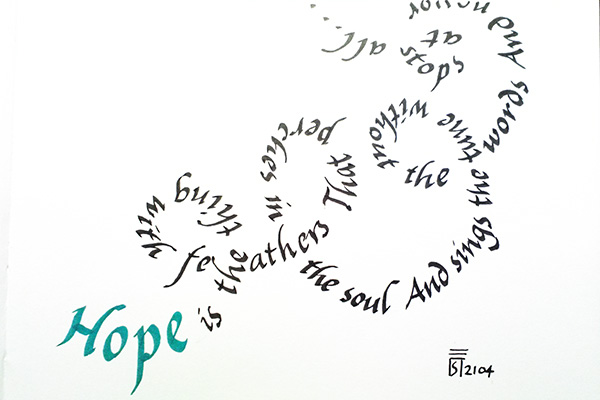 Hope is the thing with feathers That perches in the soul And sings the tune without the words And never stops at all ...
2104